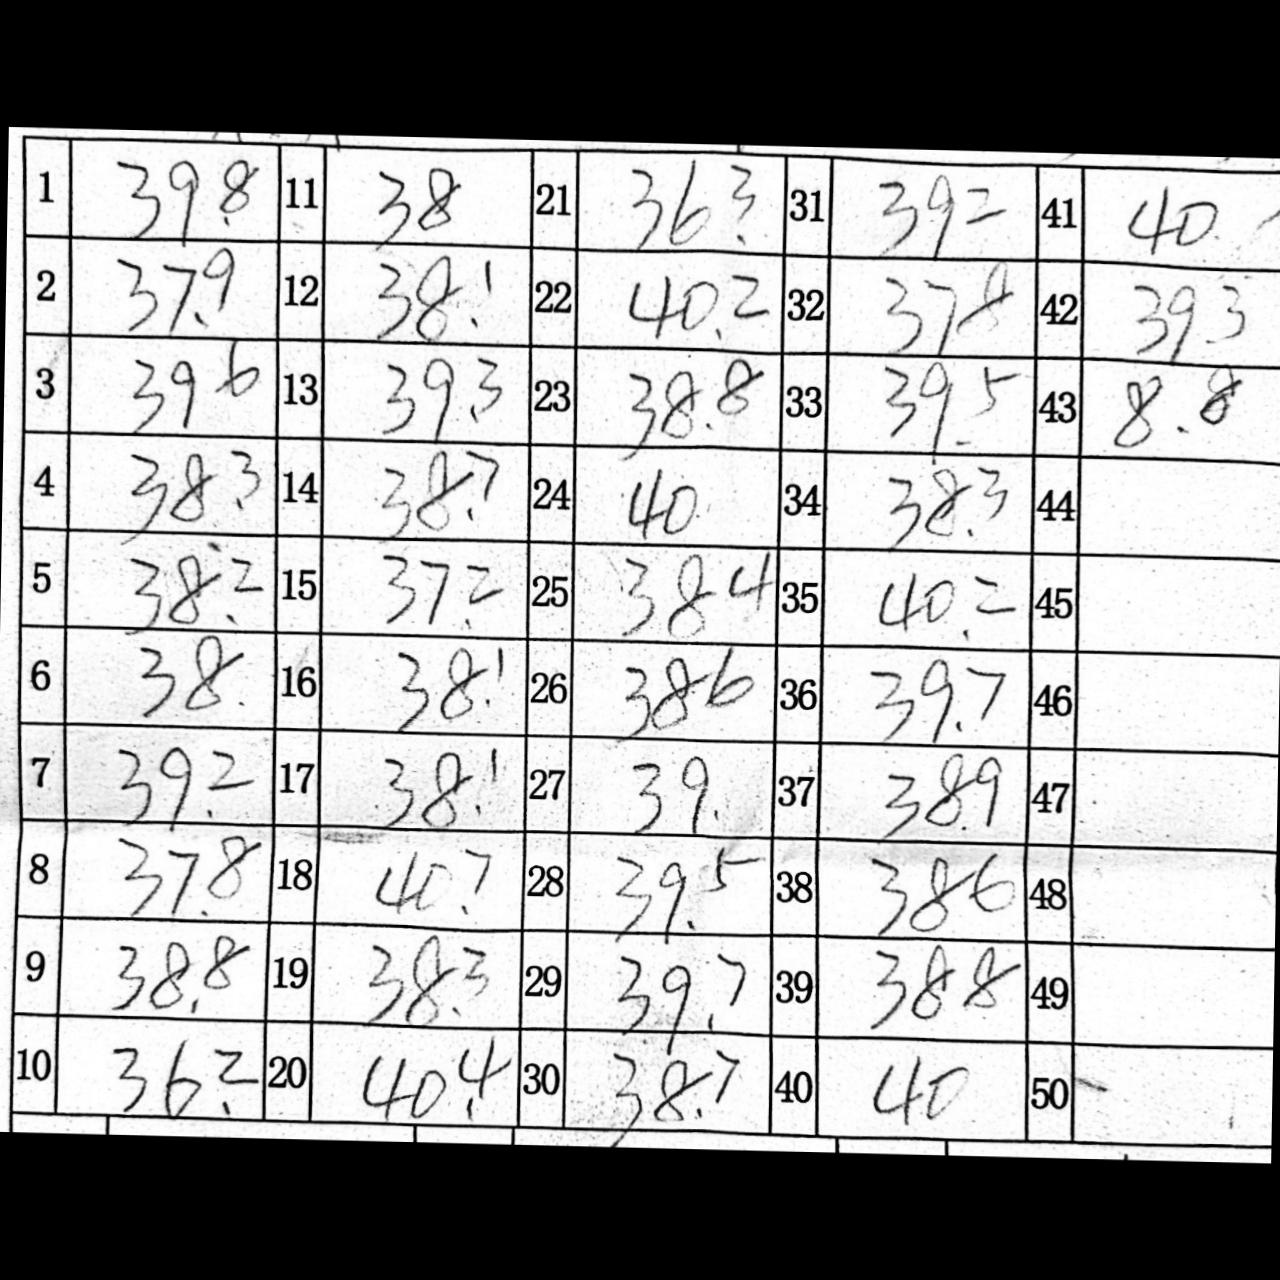 1 39.8 11 38 21 36.3 31 392 41 40.
2 37.9 12 38.1 22 40.2 32 378 42 393
3 396 13 39.3 23 38.8 33 39.5 43 8.8
4 38.3 14 38.7 24 40. 34 38.3 44
5 38.2 15 37.2 25 384 35 40.2 45
6 38. 16 38.1 26 386 36 39.7 46
7 39.2 17 38.1 27 39. 37 38.9 47
8 37.8 18 40.7 28 39.5 38 386 48
9 38.8 19 38.3 29 39.7 39 388 49
10 36.2 20 40.4 30 38.7 40 40 50